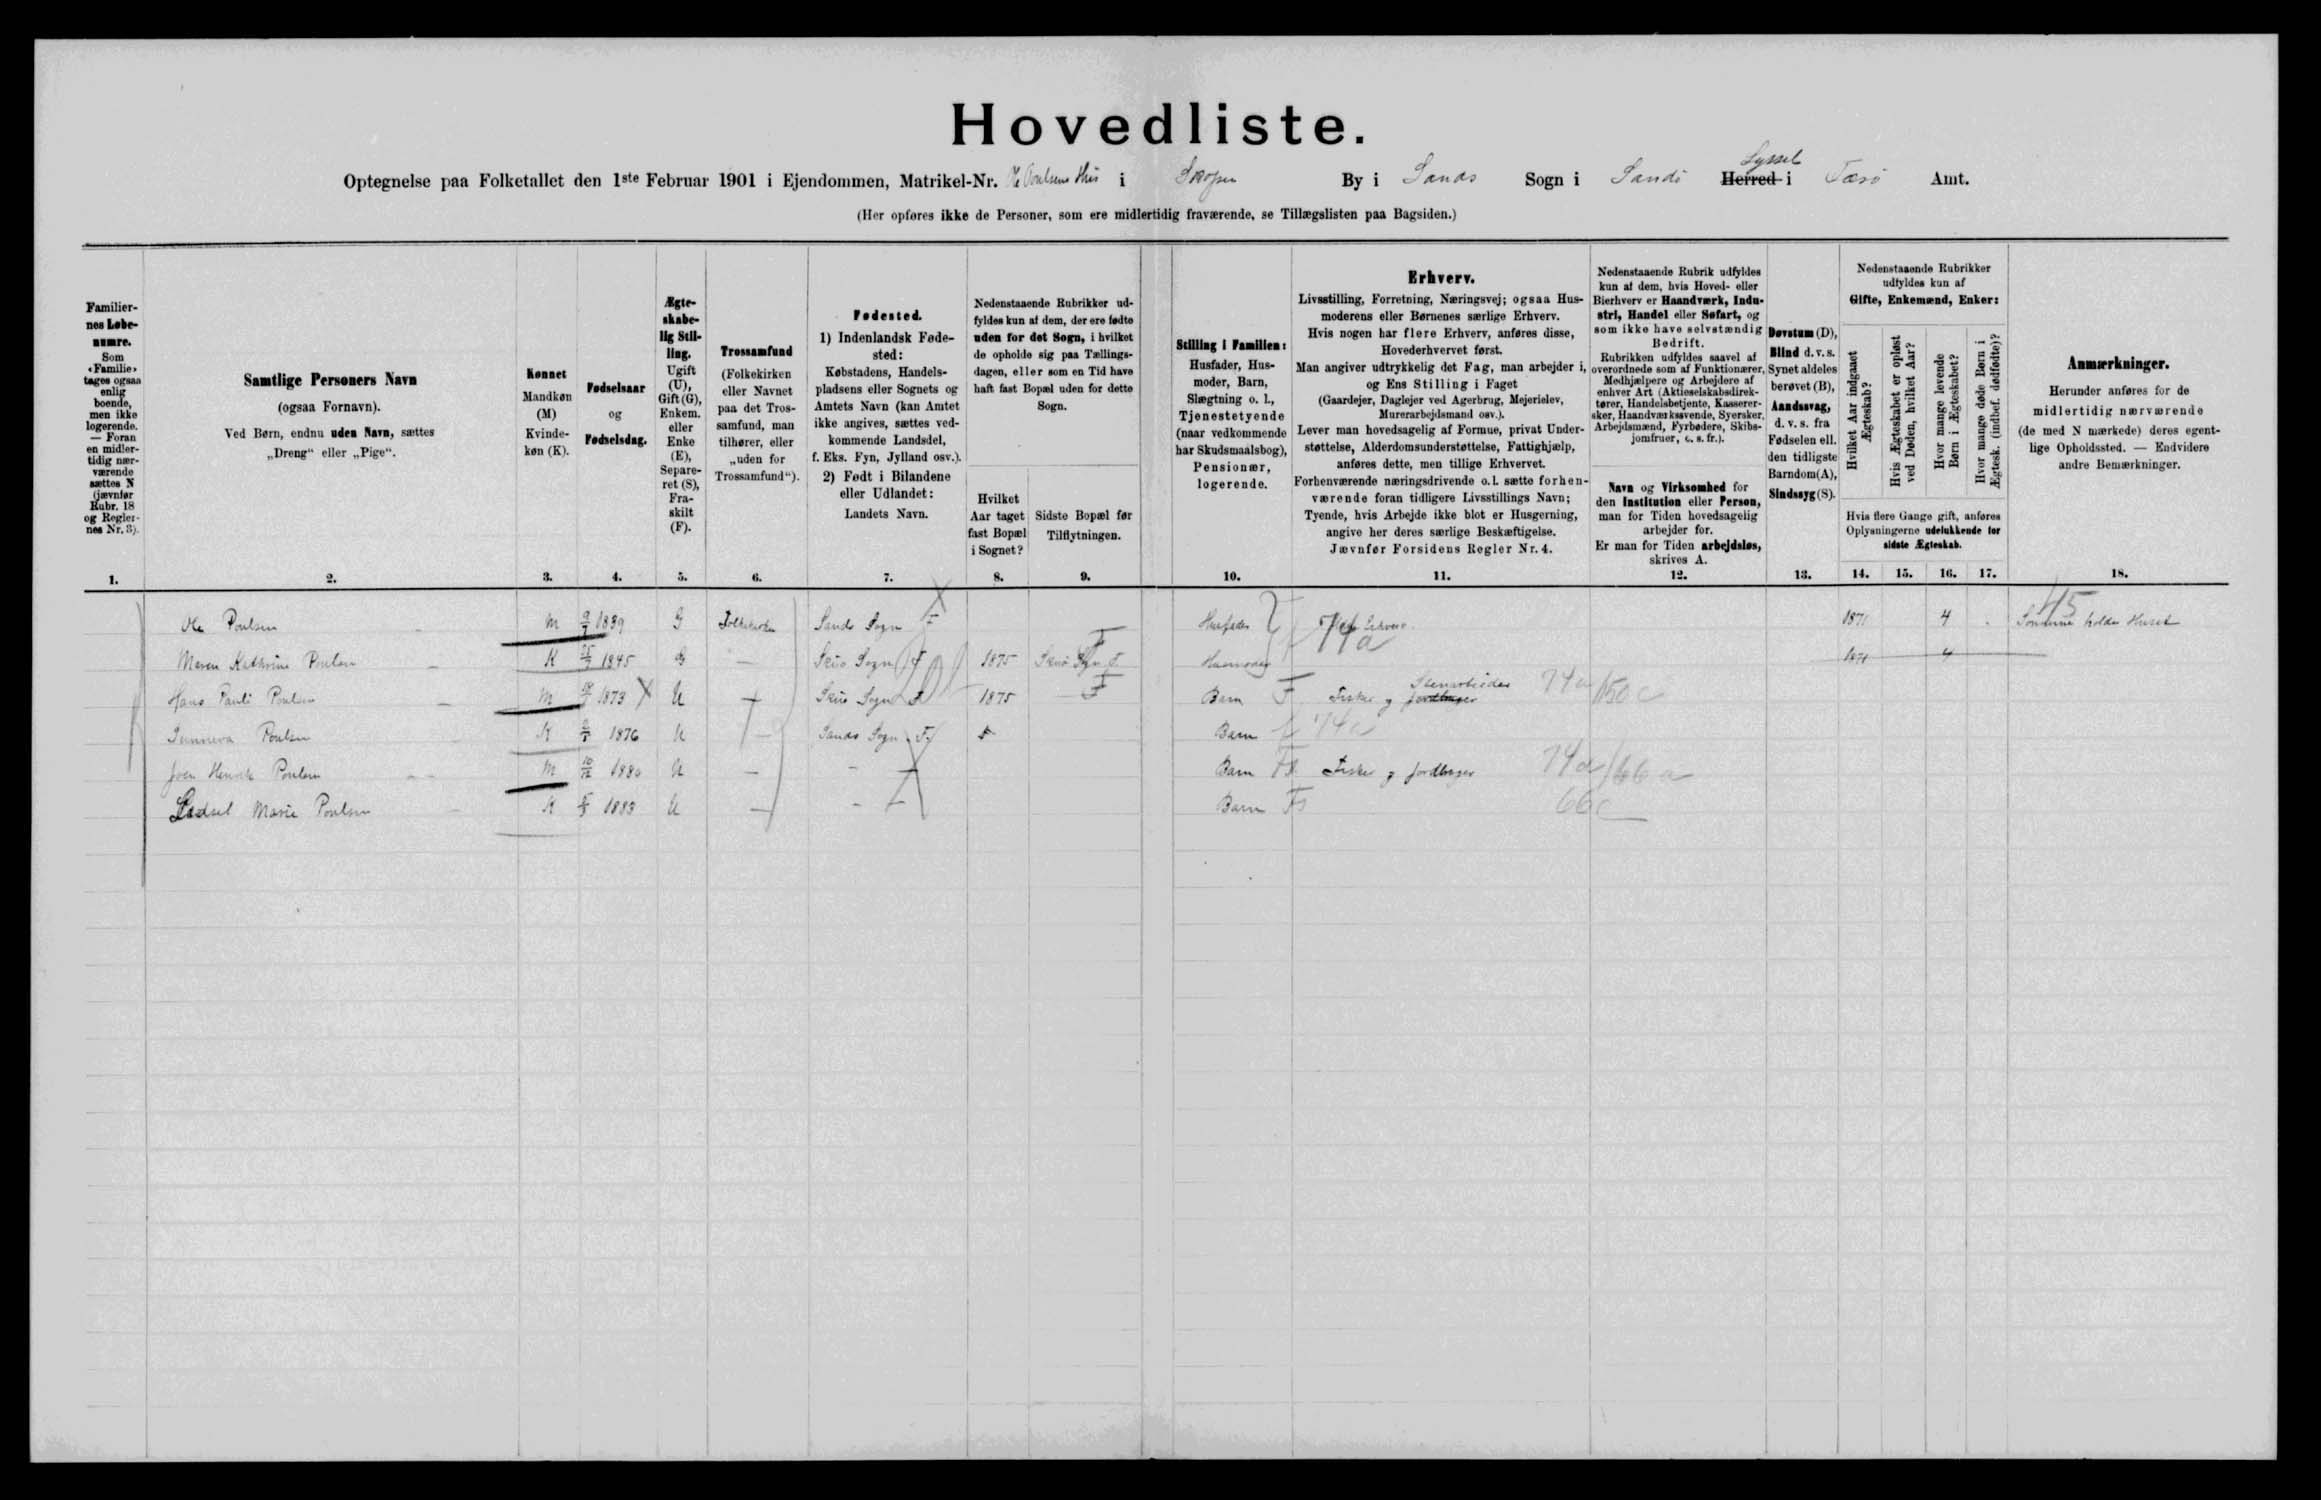 Hovedliste.
Optegnelse paa Folketallet den 1ste Februar 1901 i Ejendommen, Matrikel-Nr. Ole Poulsens Hus i Skopen By i Sands Sogn i Sandö Herred Syssel i Færö Amt.
(Her opføres ikke de Personer, som ere midlertidig fraværende, se Tillægslisten paa Bagsiden.)
Familiernes Løbenumre.
Som «Familie» tages ogsaa enlig boende, men ikke logerende. — Foran en midlertidig nærværende sættes N (jævnfør Rubr. 18 og Reglernes Nr. 3).
Samtlige Personers Navn
(ogsaa Fornavn).
Ved Børn, endnu uden Navn, sættes
„Dreng“ eller „Pige“.
Kønnet
Mandkøn (M)
Kvindekøn (K).
Fødselsaar
og
Fødselsdag.
Ægteskabelig Stilling.
Ugift (U), Gift (G), Enkem. eller Enke (E), Separeret (S), Fraskilt (F).
Trossamfund
(Folkekirken eller Navnet paa det Trossamfund, man tilhører, eller „uden for Trossamfund“).
Fødested.
1) Indenlandsk Fødested:
Købstadens, Handelspladsens eller Sognets og Amtets Navn (kan Amtet ikke angives, sættes vedkommende Landsdel, f. Eks. Fyn, Jylland osv.).
2) Født i Bilandene eller Udlandet:
Landets Navn.
Nedenstaaende Rubrikker udfyldes kun af dem, der ere fødte uden for det Sogn, i hvilket de opholde sig paa Tællingsdagen, eller som en Tid have haft fast Bopæl uden for dette Sogn.
Hvilket Aar taget fast Bopæl i Sognet?
Sidste Bopæl før Tilflytningen.
Stilling i Familien:
Husfader, Husmoder, Barn, Slægtning o. l., Tjenestetyende (naar vedkommende har Skudsmaalsbog), Pensionær, logerende.
Erhverv.
Livsstilling, Forretning, Næringsvej; ogsaa Husmoderens eller Børnenes særlige Erhverv.
Hvis nogen har flere Erhverv, anføres disse, Hovederhvervet først.
Man angiver udtrykkelig det Fag, man arbejder i, og Ens Stilling i Faget
(Gaardejer, Daglejer ved Agerbrug, Mejerielev, Murerarbejdsmand osv.).
Lever man hovedsagelig af Formue, privat Understøttelse, Alderdomsunderstøttelse, Fattighjælp, anføres dette, men tillige Erhvervet.
Forhenværende næringsdrivende o. l. sætte forhenværende foran tidligere Livsstillings Navn;
Tyende, hvis Arbejde ikke blot er Husgerning, angive her deres særlige Beskæftigelse.
Jævnfør Forsidens Regler Nr. 4.
Nedenstaaende Rubrik udfyldes kun af dem, hvis Hoved- eller Bierhverv er Haandværk, Industri, Handel eller Søfart, og som ikke have selvstændig Bedrift.
Rubrikken udfyldes saavel af overordnede som af Funktionærer, Medhjælpere og Arbejdere af enhver Art (Aktieselskabsdirektører, Handelsbetjente, Kasserersker, Haandværkssvende, Syersker, Arbejdsmænd, Fyrbødere, Skibsjomfruer, o. s. fr.).
Navn og Virksomhed for den Institution eller Person, man for Tiden hovedsagelig arbejder for.
Er man for Tiden arbejdsløs, skrives A.
Døvstum (D),
Blind d. v. s. Synet aldeles berøvet (B),
Aandssvag, d. v. s. fra Fødselen ell. den tidligste Barndom (A),
Sindssyg (S).
Nedenstaaende Rubrikker udfyldes kun af
Gifte, Enkemænd, Enker:
Hvilket Aar indgaaet Ægteskab?
Hvis Ægteskabet er opløst ved Døden, hvilket Aar?
Hvor mange levende Børn i Ægteskabet?
Hvor mange døde Børn i Ægtesk. (indbef. dødfødte)?
Hvis flere Gange gift, anføres Oplysningerne udelukkende for sidste Ægteskab.
Anmærkninger.
Herunder anføres for de midlertidig nærværende (de med N mærkede) deres egentlige Opholdssted. — Endvidere andre Bemærkninger.
1. 2. 3. 4. 5. 6. 7. 8. 9. 10. 11. 12. 13. 14. 15. 16. 17. 18.
Ole Poulsen M 1839 G Folkekirken Sands Sogn F Husfader 74a 1871 4 45 Sønnerne holder Huset
Maren Kathrine Poulsen K 1845 G — Skuö Sogn F 1875 Skuö Sogn F. Husmoder 1871 4
Hans Pauli Poulsen M 1873 X U — Skuö Sogn F 1875 F Barn F Fisker og Jordbruger Stenarbeider 74a/50c
Sunneva Poulsen K 1876 U — Sands Sogn F Barn f 74a
Joen Henrik Poulsen M 1880 U — — Barn Fisker og Jordbruger 74a/66a
Lidsel Marie Poulsen K 1883 U — — Barn 66c